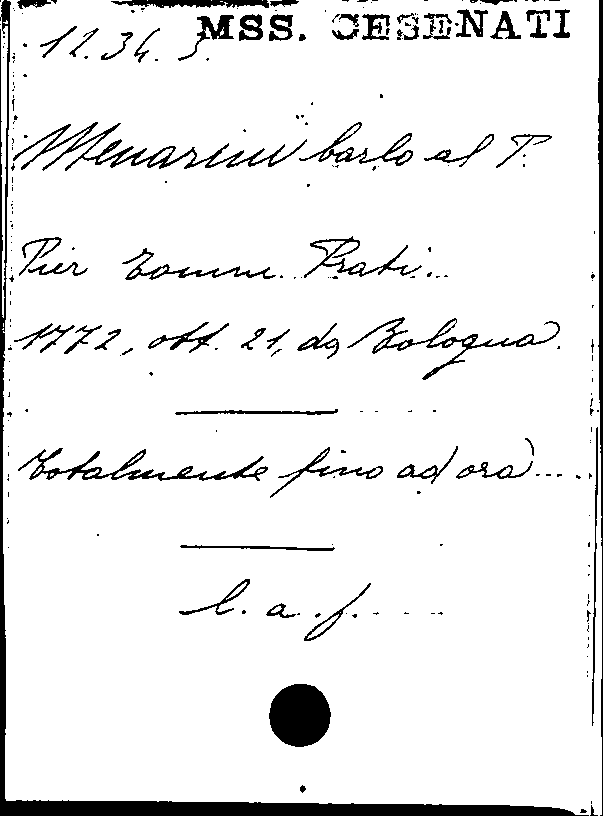 MSS. CESENATI
12.34.3.
Menarini Carlo al P.
Pier Tomm. Prati.
1772, ott. 21, da Bologna
Totalmente fino ad ora ....
l. a. f.